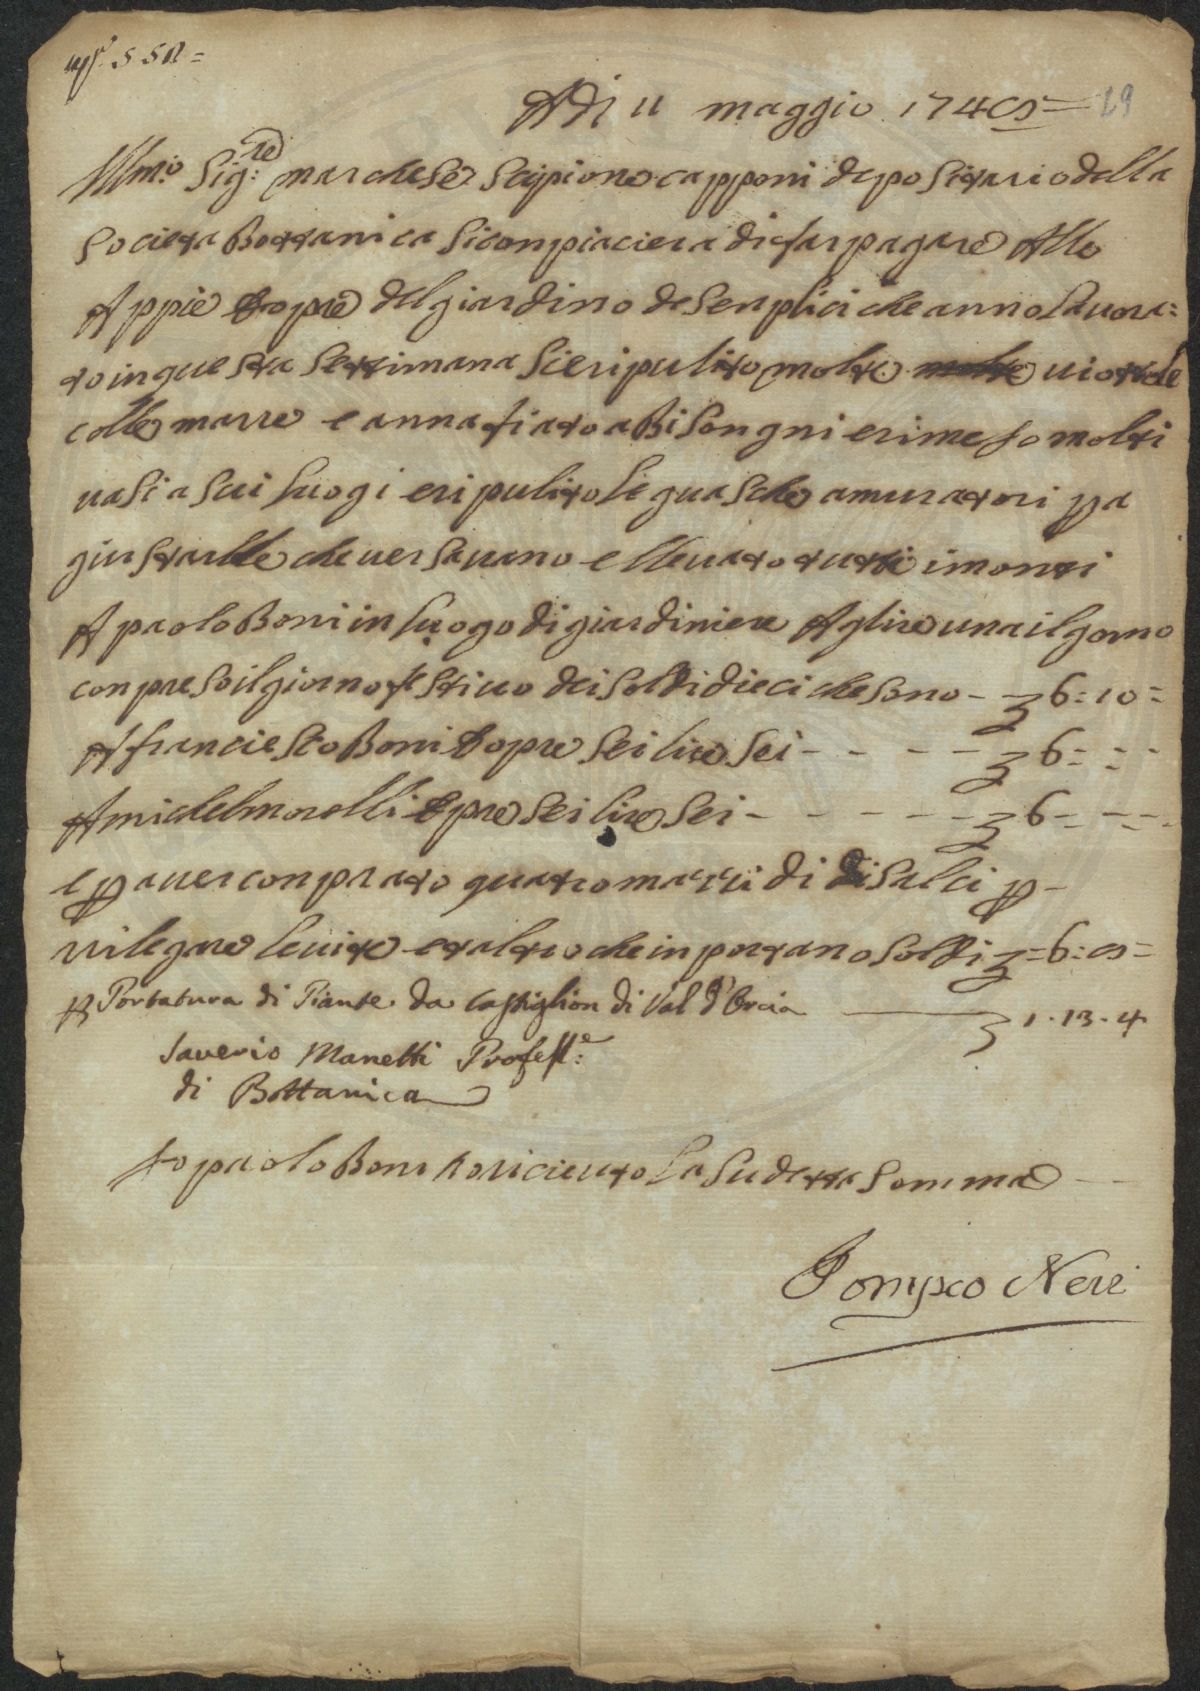 Adi 11 maggio 174 29
Illmo: Sig:re marchese Scipione capponi depositario della
Societa Bottanica si conpiaciera di far pagare Alle
Appie opre del giardino de Senplici che anno lauora=
to in questa Settimana Si e ripulito molte uiottole
colle marre e annafiato a Bisongni e rimeso molti
uasi a sui luogi e ripulito le guasche a muratori pa
giustarlle che uersauano e lleuato tutti i monti
A paolo Boni in luogo di giardiniere A lire una il gorno
conpreso il giorno festiuo dei Soldi dieci che Sono - 6:10=
A franciesco Boni opre Sei lire Sei - - - - - 6= =
A michel morelli opre Sei lire Sei - - - - - - 6= - -
e p auer conprato quatro mazzi di di Salci p-
rilegare le uite e altro che inportano Soldi =6:
p Portatura di Piante da Castiglion di Val d'Orcia 1.13.4
Saverio Manetti Profess:e
di Bottanica
Io paolo Boni o riceuto La Sudetta Somma
Pompeo Neri